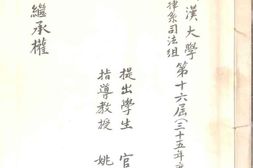 漢大學第十六屆(三十五年
律系司法組
提出學生 官
指導教授 姚
繼承權